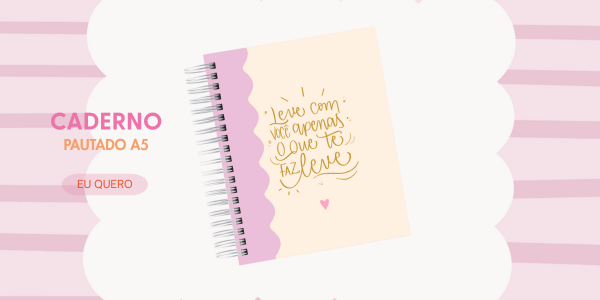 CADERNO
PAUTADO A5
EU QUERO
Leve com
você apenas
o que te
faz leve